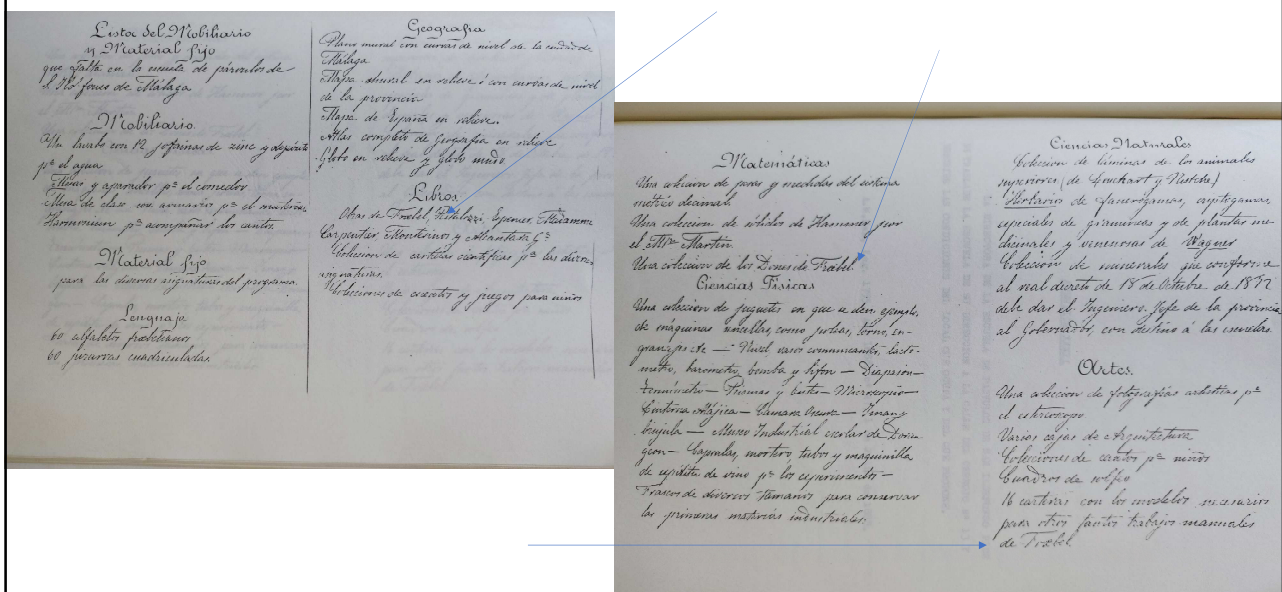 Lista del Mobiliario
y Material fijo
que falta en la escuela de párvulos de
S. Ildefonso de Málaga
Mobiliario.
Un lavabo con 12 jofainas de zinc y depósito
pª el agua
Mesas y aparador pª el comedor
Mesa de clase con armario pª el
Harmonium pª acompañar los cantos.
Material fijo
para las diversas asignaturas del programa.
Lenguaje
60 alfabetos frœbelianos
60 pizarras cuadriculadas.
Geografia
Plano mural con curvas de nivel de la ciudad de
Málaga
Mapa mural en relieve ó con curvas de nivel
de la provincia
Mapa de España en relieve.
Atlas completo de Geografia en relieve
Globo en relieve y Globo mudo
Libros
Obras de Frœbel, Pestalozzi, Spencer, Madamme
Carpentier, Montesinos y Alcantara Gª
Coleccion de cartillas cientificas pª las diversas
asignaturas.
Colecciones de cuentos y juegos para niños
Matemáticas
Una coleccion de pesas y medidas del sistema
metrico decimal.
Una coleccion de sólidos de por
el Mtro Martin.
Una coleccion de los Dones de Frœbel.
Ciencias Fisicas
Una coleccion de juguetes en que se den ejemplos
de máquinas sencillas como poleas, torno, en-
granajes &c — Nivel, vasos comunicantes, lacto-
metro, barometro, bomba y sifon — Diapason —
Termómetro — Prismas y lentes — Microscopio —
Linterna Májica — Cámara Oscura — Iman y
brújula — Museo Industrial escolar de Doran-
geon — Capsulas, mortero, tubos y maquinilla
de espiritu de vino pª los esperimentos —
Frascos de diversos tamaños para conservar
las primeras materias industriales.
Ciencias Naturales
Coleccion de láminas de los animales
superiores (de y )
Herbario de fanerógamas, criptogamas,
especiales de gramineas y de plantas me-
dicinales y venenosas de Wagner
Coleccion de minerales que conforme
al real decreto de 18 de Octubre de
debe dar el Ingeniero Jefe de la provincia
al Gobernador, con destino á las escuelas.
Artes.
Una coleccion de fotografias artisticas pª
el estereoscopo
Varias cajas de Arquitectura
Colecciones de cantos pª niños
Cuadros de solfeo
16 carteras con los modelos necesarios
para otros tantos trabajos manuales
de Frœbel